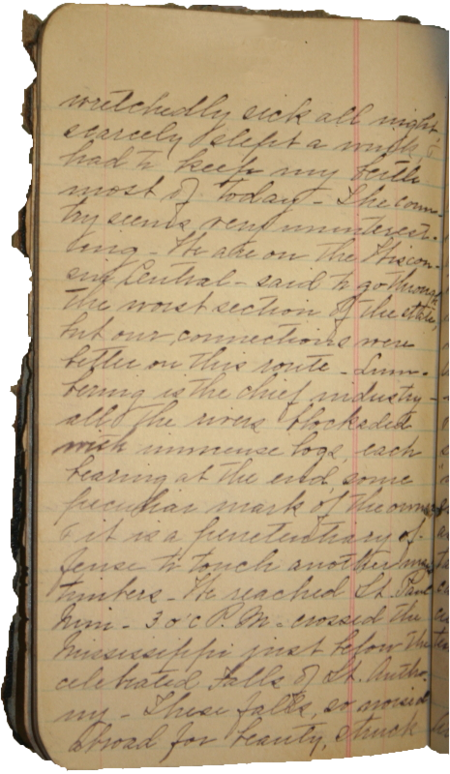 wretchedly sick all night
scarcely slept a wink &
had to keep my berth
most of today - The coun-
try seems very uninterest-
ing - We are on the Wiscon-
sin Central - said to go through
the worst section of the state,
but our connections were
better on this route - Lum-
bering is the chief industry -
all the rivers blocksded
with immense logs, each
bearing at the end some
peculiar mark of the owner
& it is a penetentiary of-
fense to touch another
timbers - We reached St. Paul
Minn - 3 o'c P.M. - crossed the
Mississippi just below the
celebrated Falls of St. Antho-
ny - These falls, so noised
abroad for beauty, struck